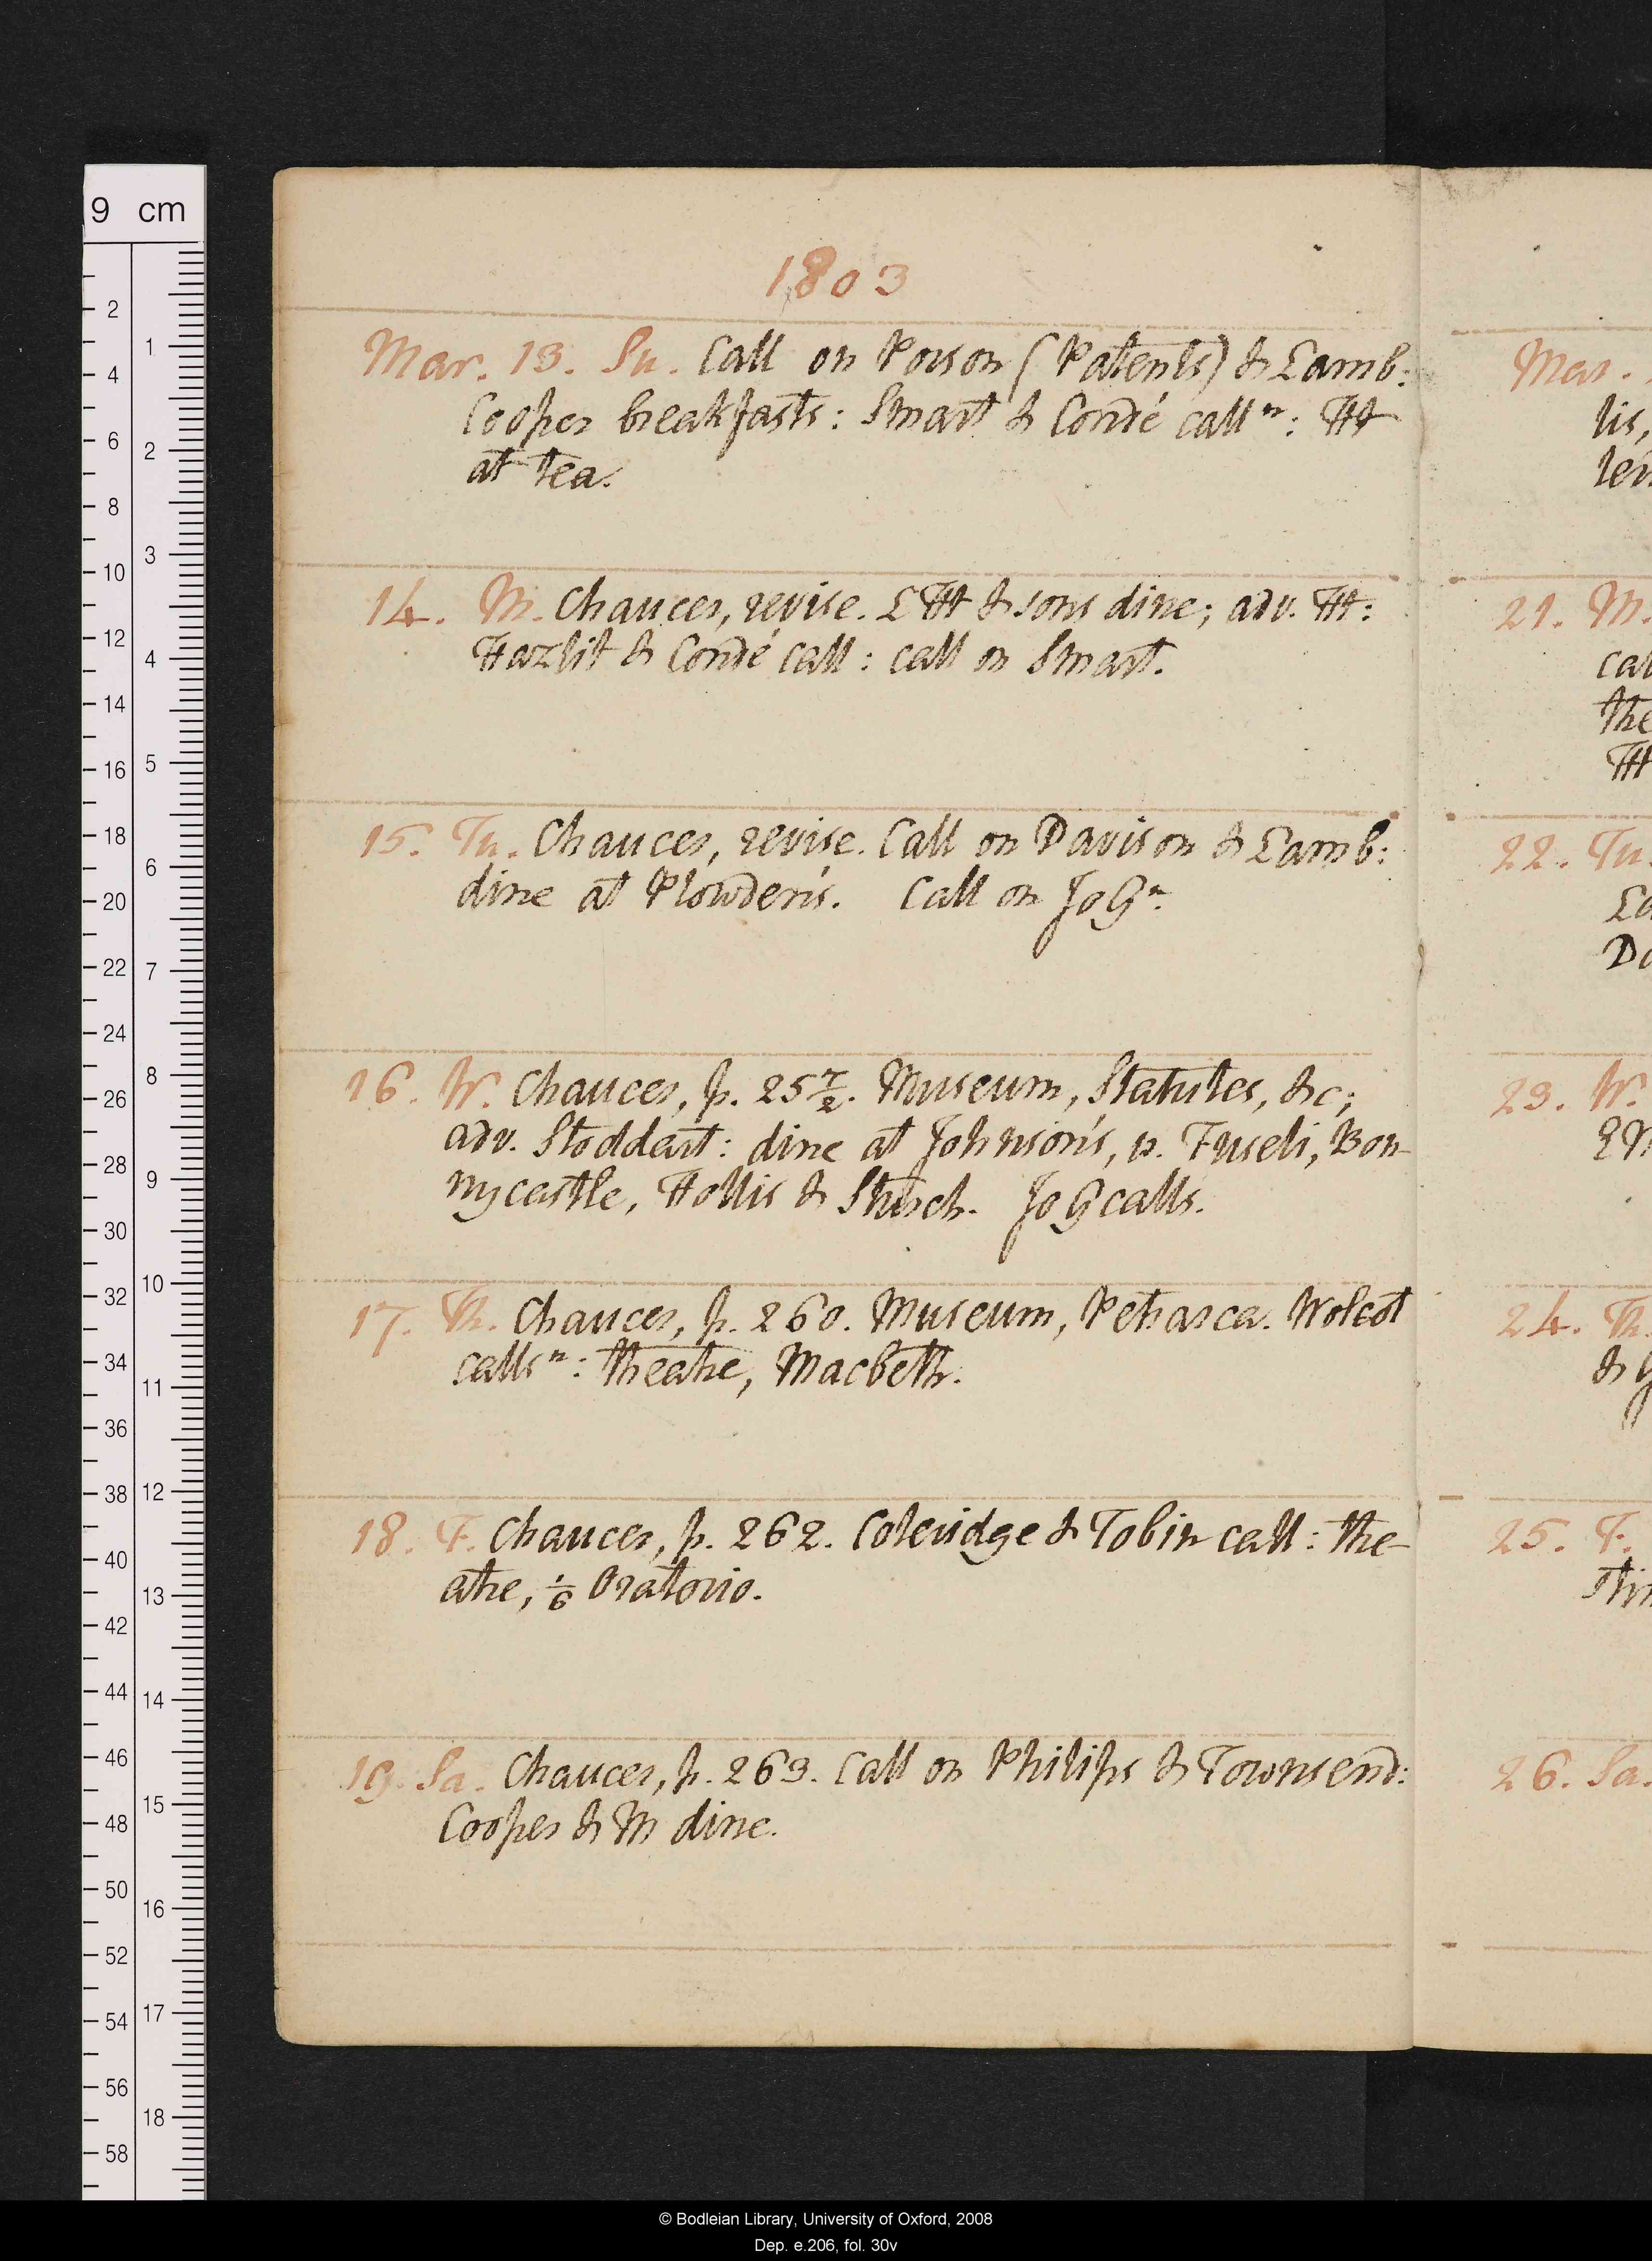 1803
Mar. 13. Su. Call on Porson (Patents) & Lamb:
Cooper breakfasts: Smart & Condé call n: HH
at tea.
14. M. Chaucer, revise. L HH & sons dine; adv. HH:
Hazlit & Condé call: call on Smart.
15. Tu. Chaucer, revise. Call on Davison & Lamb:
dine at Plowden's. Call on Jo G n.
16. W. Chaucer, p. 257/2. Museum, Statutes, &c;
adv. Stoddart: dine at Johnson's, w. Fuseli, Bon-
nycastle, Hollis & Sturch. Jo G calls.
17. Th. Chaucer, p. 260. Museum, Petrarca. Wolcot
calls n: theatre, Macbeth.
18. F. Chaucer, p. 262. Coleridge & Tobin call: the-
atre, 1/6 Oratorio.
19. Sa. Chaucer, p. 263. Call on Philips & Townsend:
Cooper & M dine.
Mar.
lis,
21. M.
the
HH
22. Tu.
23. W.
24. Th.
25. F.
26. Sa.
9 cm
2 4 6 8 10 12 14 16 18 20 22 24 26 28 30 32 34 36 38 40 42 44 46 48 50 52 54 56 58
1 2 3 4 5 6 7 8 9 10 11 12 13 14 15 16 17 18
© Bodleian Library, University of Oxford, 2008
Dep. e.206, fol. 30v